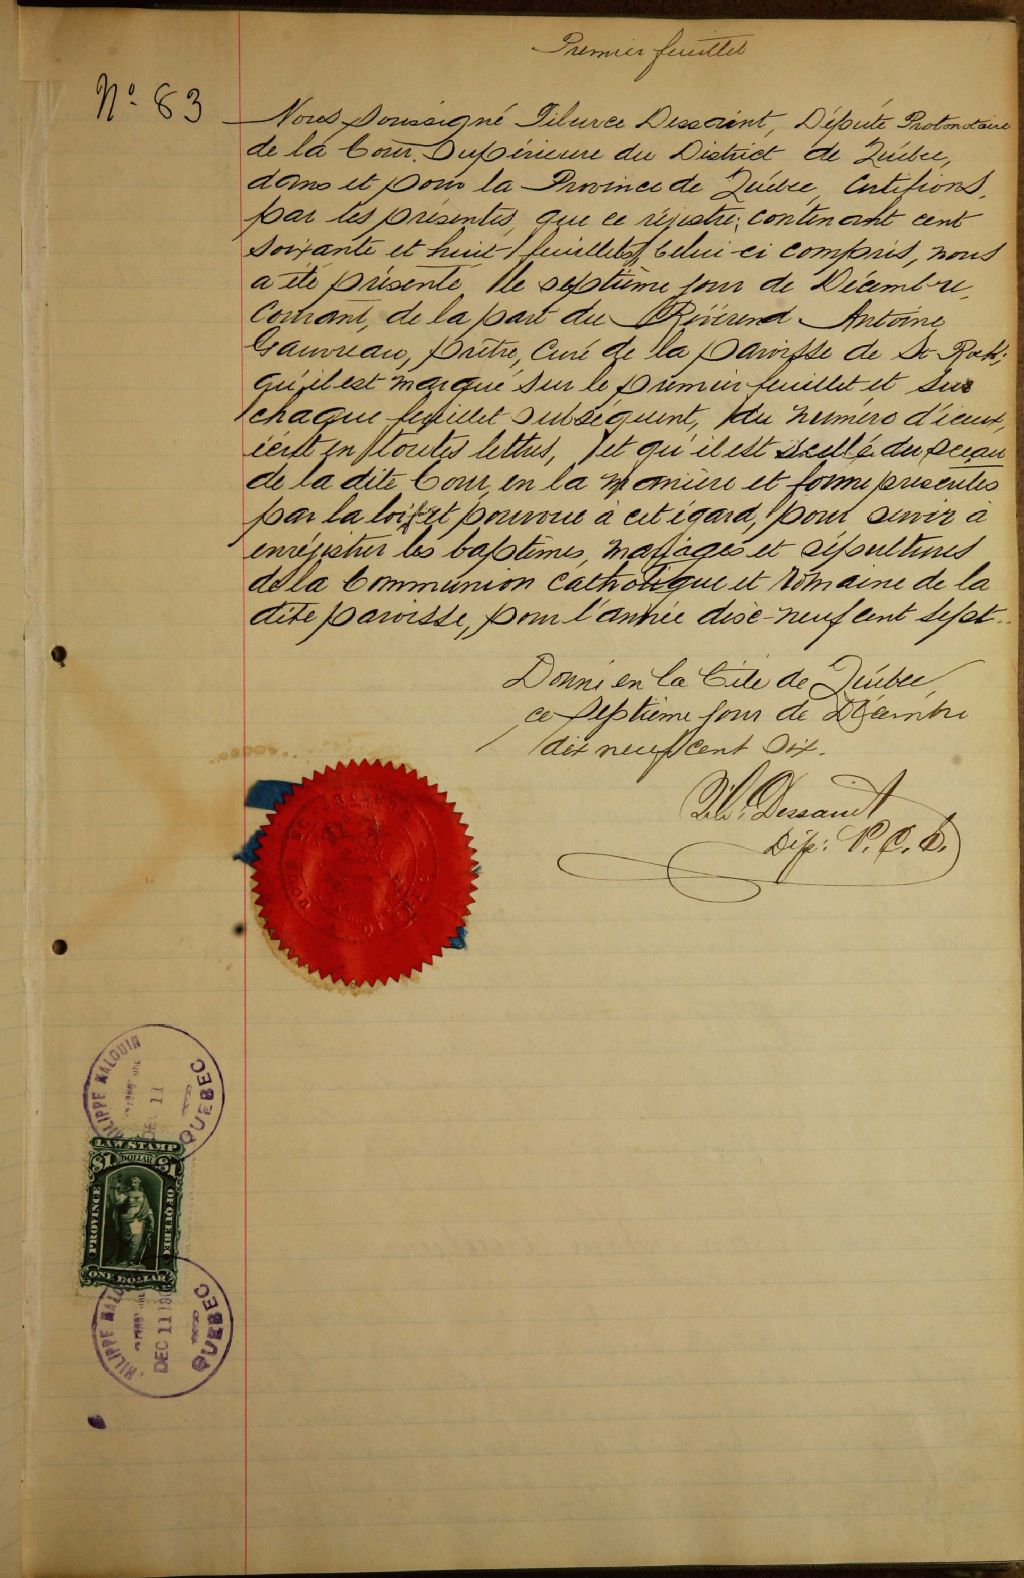 Premier feuillet
No. 83
Nous soussigné Tiburce Dessaint, Député Protonotaire
de la Cour Supérieure du District de Québec,
dans et pour la Province de Québec, Certifions,
par les présentes, que ce régistre; contenant cent
soixante et huit feuillets, Celui-ci compris, nous
a été présenté le septième jour de Décembre
Courant, de la part du Révérend Antoine
Gauvreau, prêtre, Curé de la paroisse de St Roch;
qu'il est marqué sur le premier feuillet et sur
chaque feuillet subséquent, du numéro d'iceux,
écrit en toutes lettres, et qu'il est scellé du sceau
de la dite Cour, en la manière et forme prescrites
par la loi et pourvue à cet égard, pour servir à
enrégistrer les baptêmes, mariages et sépultures
de la Communion Catholique et Romaine de la
dite paroisse, pour l'année dix-neuf cent sept..
Donné en la Cité de Québec,
ce septième jour de Décembre
dix neuf cent six.
Tib. Dessaint
Dép: P. C. S.
QUEBEC
PHILIPPE MALOUIN
DEC 11
QUEBEC
LAW STAMP
$1 DOLLAR $1
PROVINCE
OF QUEBEC
ONE DOLLAR
PHILIPPE MALOUIN
DEC 11 19
QUEBEC